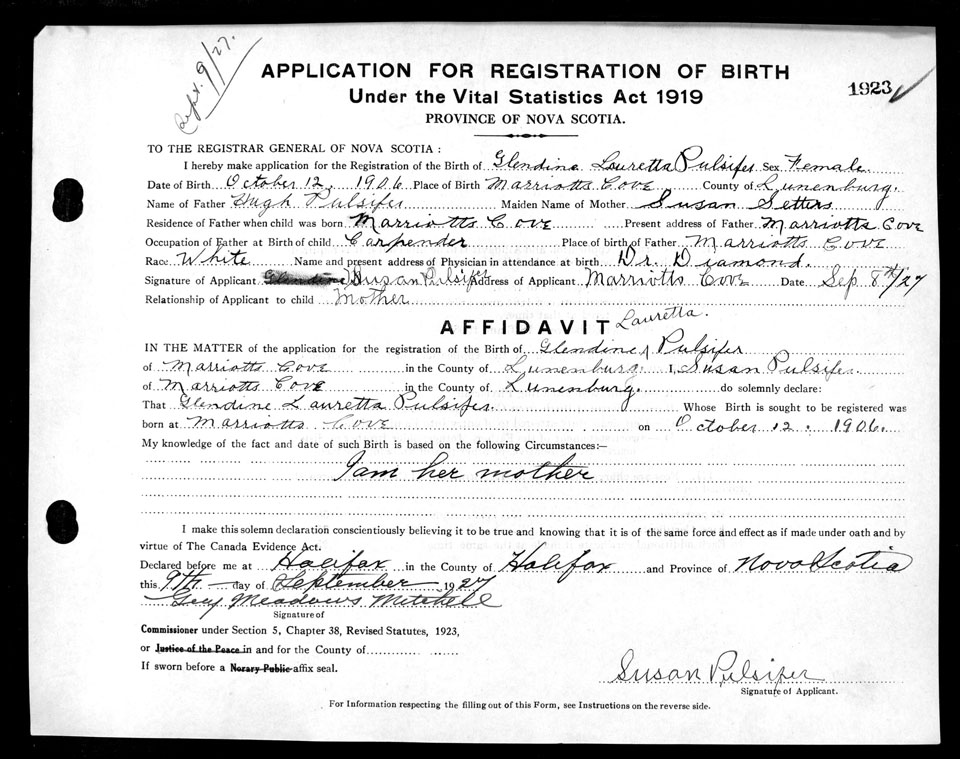 Sept. 9/27.
APPLICATION FOR REGISTRATION OF BIRTH
1923
Under the Vital Statistics Act 1919
PROVINCE OF NOVA SCOTIA.
TO THE REGISTRAR GENERAL OF NOVA SCOTIA:
I hereby make application for the Registration of the Birth of Glendine Lauretta Pulsifer Sex Female.
Date of Birth October 12, 1906 Place of Birth Marriotts Cove County of Lunenburg.
Name of Father Hugh Pulsifer Maiden Name of Mother Susan
Residence of Father when child was born Marriotts Cove Present address of Father Marriotts Cove
Occupation of Father at Birth of child Carpender Place of birth of Father Marriotts Cove
Race White Name and present address of Physician in attendance at birth Dr. Diamond.
Signature of Applicant Glendine Susan Pulsifer Address of Applicant Marriotts Cove Date Sep 8th/27
Relationship of Applicant to child Mother
AFFIDAVIT
Lauretta.
IN THE MATTER of the application for the registration of the Birth of Glendine Pulsifer
of Marriotts Cove in the County of Lunenburg. I, Susan Pulsifer.
of Marriotts Cove in the County of Lunenburg. do solemnly declare:
That Glendine Lauretta Pulsifer. Whose Birth is sought to be registered was
born at Marriotts Cove on October 12. 1906.
My knowledge of the fact and date of such Birth is based on the following Circumstances:—
I am her mother
I make this solemn declaration conscientiously believing it to be true and knowing that it is of the same force and effect as if made under oath and by
virtue of The Canada Evidence Act.
Declared before me at Halifax in the County of Halifax and Province of Nova Scotia
this 9th day of September 1927
Guy Meadows Mitchell
Signature of
Commissioner under Section 5, Chapter 38, Revised Statutes, 1923,
or Justice of the Peace in and for the County of
If sworn before a Notary Public affix seal.
Susan Pulsifer
Signature of Applicant.
For Information respecting the filling out of this Form, see Instructions on the reverse side.